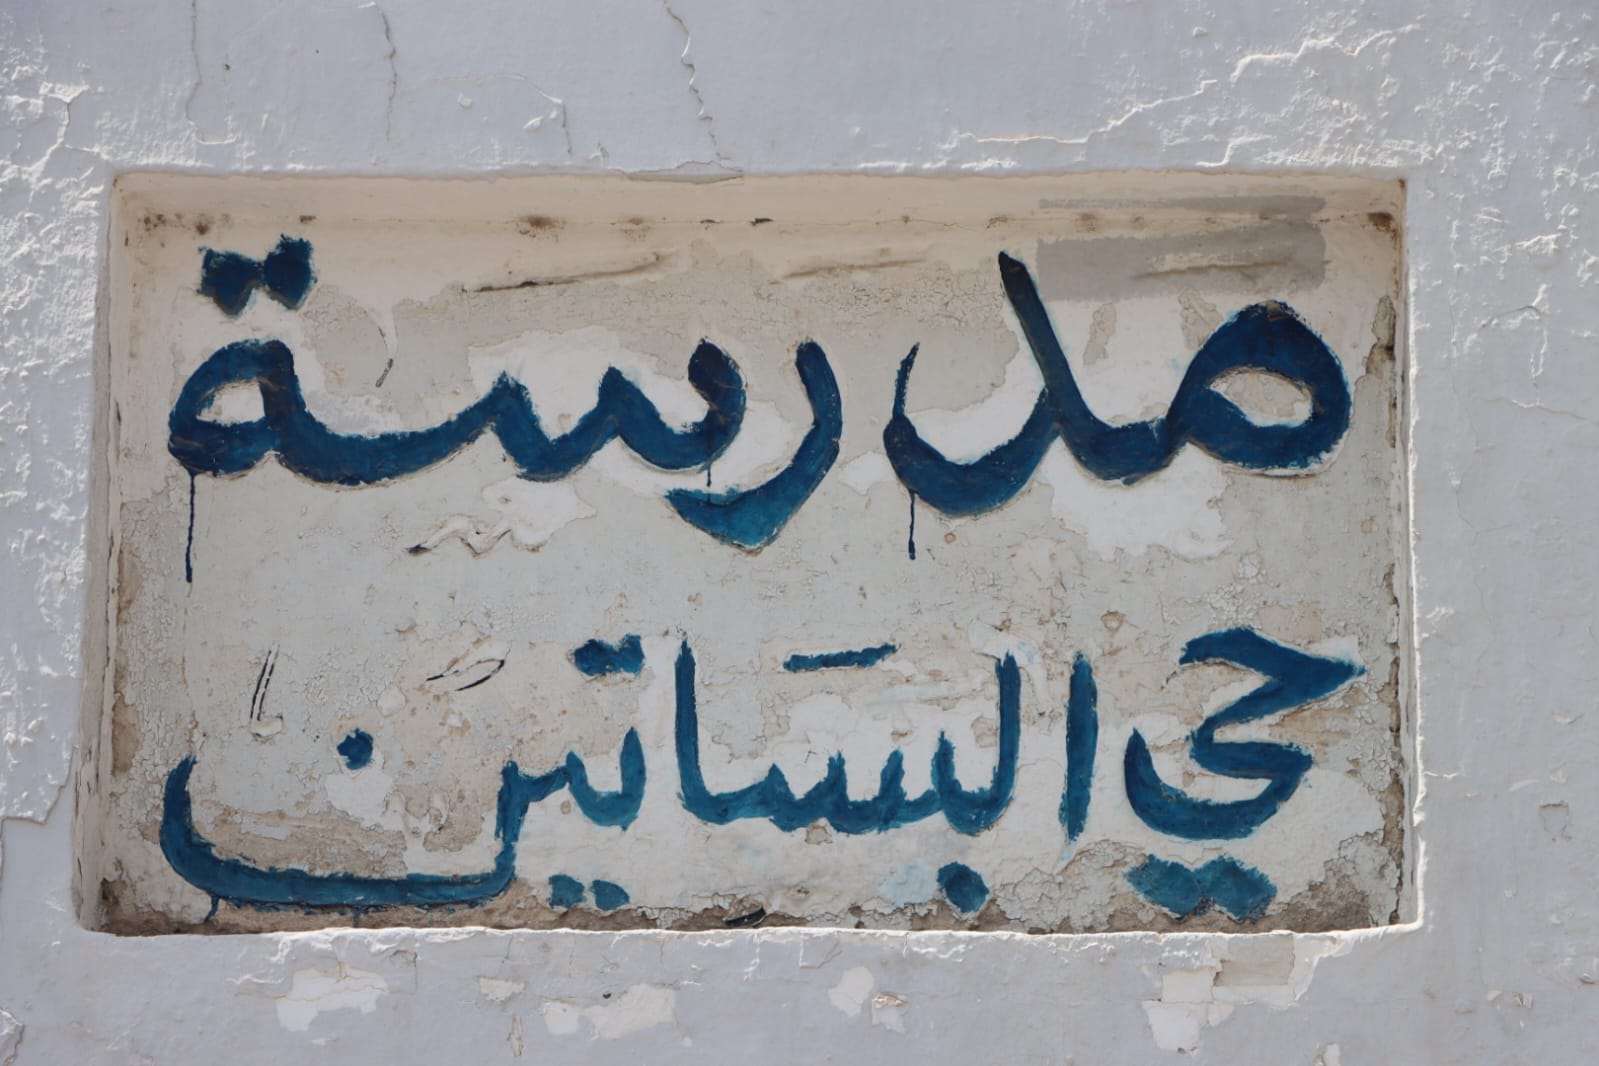 مدرسة
حي البَساتين